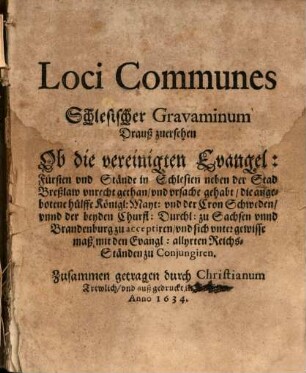 Loci Communes
Schlesischer Gravaminum
Drauß zuersehen
Ob die vereinigten Evangel:
Fürsten vnd Stände in Schlesien neben der Stad
Breßlaw vnrecht gethan/ vnd vrsache gehabt/ die ange-
botene hülffe Königl: Mayt: vnd der Cron Schweden/
vnnd der beyden Churfl: Durchl: zu Sachsen vnnd
Brandenburg zu acceptiren/ vnd sich vnter gewisse
maß/ mit den Evangl: alijrten Reichs-
Ständen zu Conjungiren.
Zusammen getragen durch Christianum
Trewlich/ vnd auß gedruckt
Anno 1634.